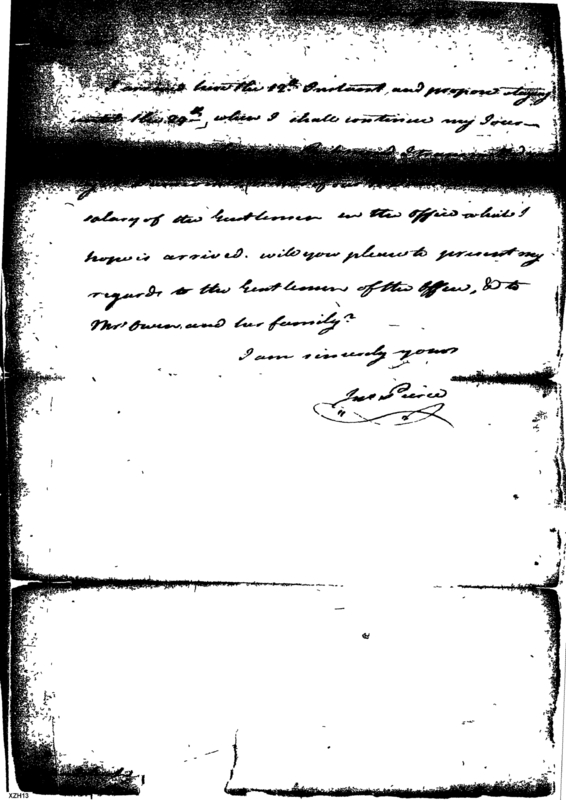 I arrived here the 12th Instant, and propose staying
until the 24th, when I shall continue my Jour-
salary of the Gentlemen in the office which I
hope is arrived. will you please to present my
regards to the Gentlemen of the Office, & to
Mrs Owen and her family?
I am sincerely yours
Jno Pierce
XZH13